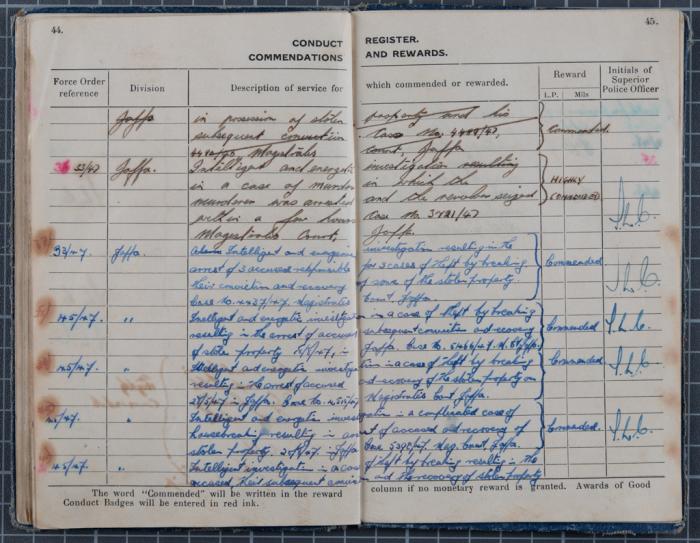 44.
45.
CONDUCT REGISTER.
COMMENDATIONS AND REWARDS.
Force Order reference
Division
Description of service for which commended or rewarded.
Reward
L.P. Mils
Initials of Superior Police Officer
Jaffa in possession of stolen property and his Commended.
subsequent conviction Case No. 4488/47,
Magistrate Court, Jaffa
53/47 Jaffa. Intelligent and energetic investigation resulting HIGHLY COMMENDED
in a case of murder in which the
murderer was arrested and the revolver seized
within a few hours case No. 3721/47
Magistrates Court, Jaffa.
53/47. Jaffa. Intelligent and energetic investigation resulting in the Commended
arrest of 3 accused responsible for 3 cases of theft by breaking
their conviction and recovery of some of the stolen property.
Case No. 4437/47. Magistrates Court, Jaffa.
45/47. " Intelligent and energetic investigation in a case of theft by breaking Commended
resulting in the arrest of accused subsequent conviction and recovery
of stolen property in Jaffa. Case No.
45/47. " Intelligent and energetic investigation in a case of theft by breaking Commended
resulting in the arrest of accused and recovery of the stolen property on
in Jaffa. Case No. Magistrates Court, Jaffa.
/47. " Intelligent and energetic investigation in a complicated case of Commended.
housebreaking resulting in arrest of accused and recovery of
stolen property. in Jaffa Case Mag. Court, Jaffa.
45/47. " Intelligent investigation in a case of theft by breaking resulting in the
accused, their subsequent conviction and the recovery of stolen property
The word "Commended" will be written in the reward column if no monetary reward is granted. Awards of Good
Conduct Badges will be entered in red ink.